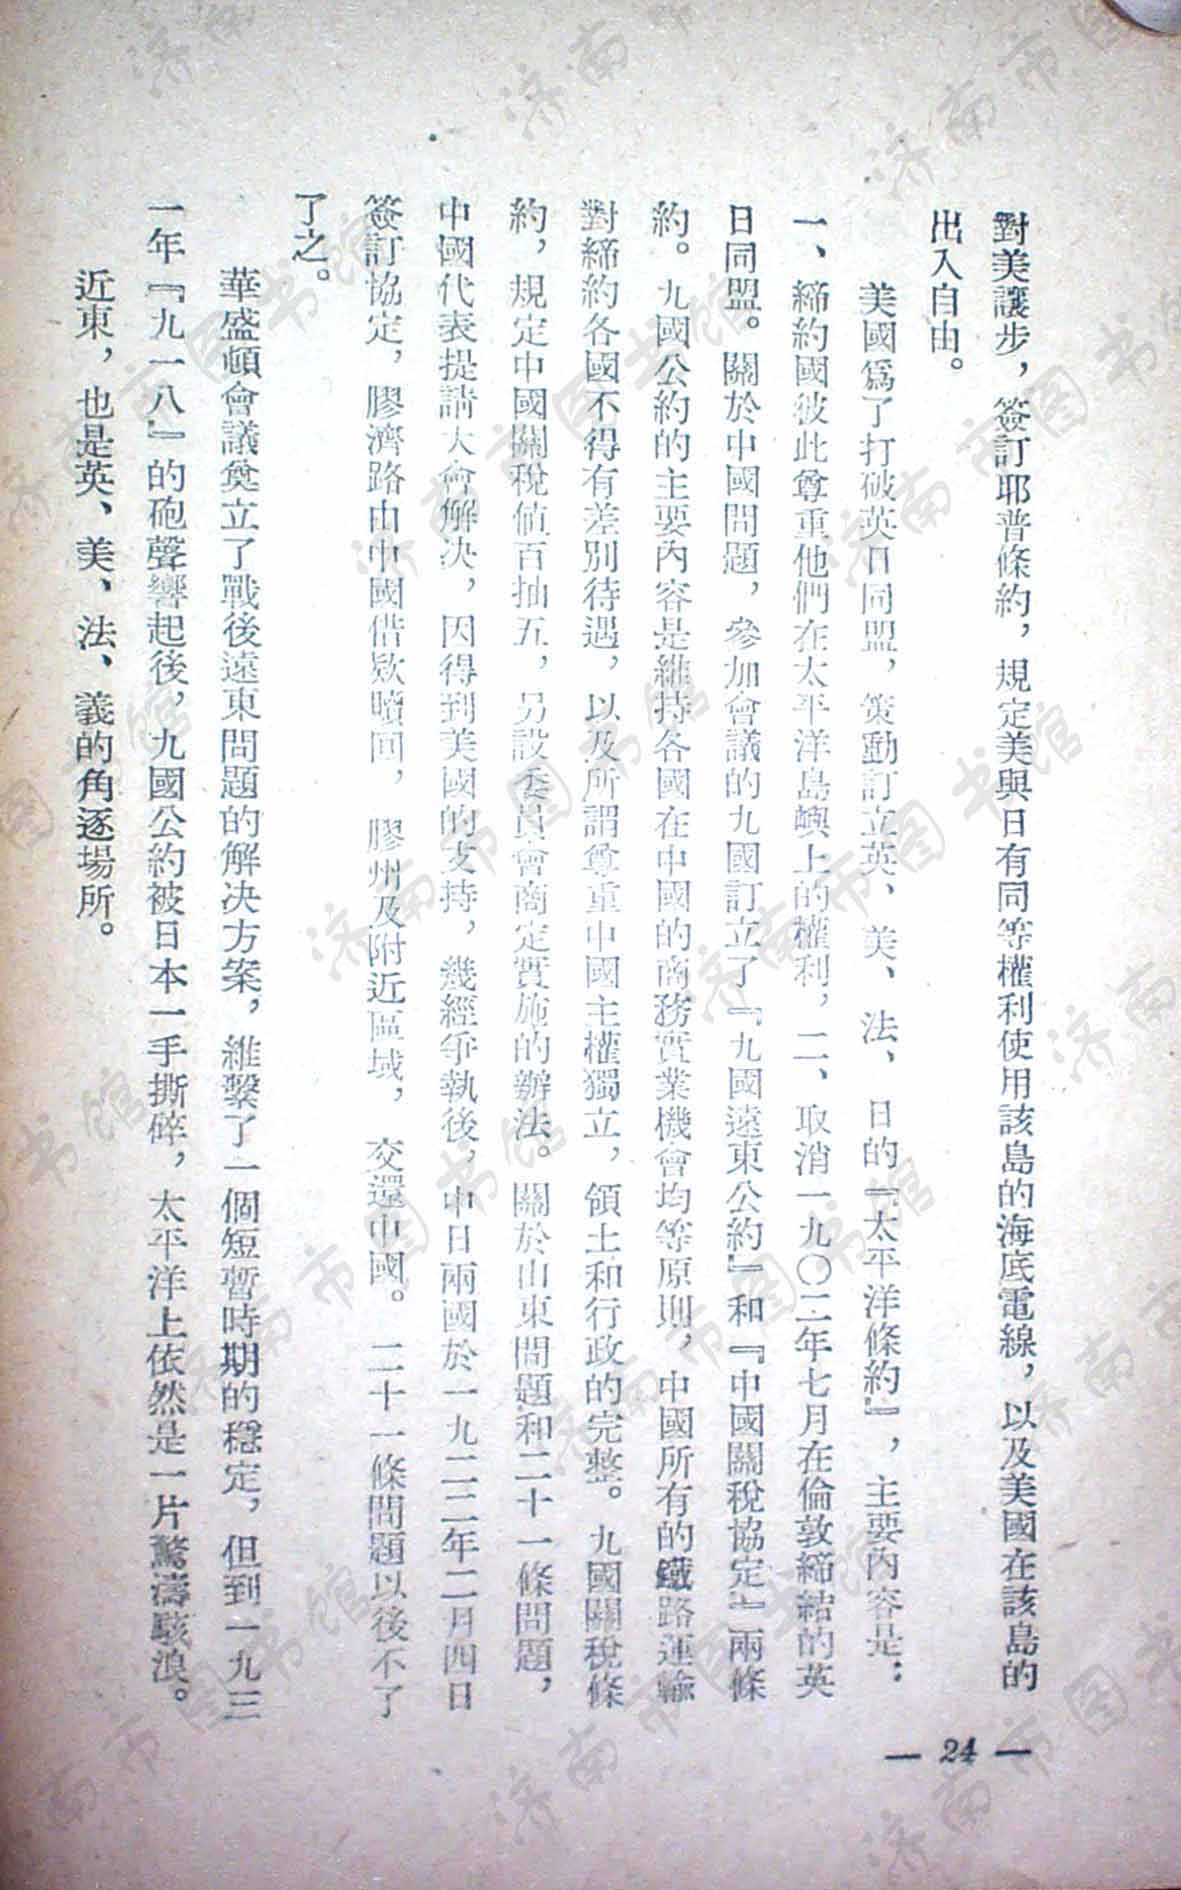 對美讓步，簽訂耶普條約，規定美與日有同等權利使用該島的海底電線，以及美國在該島的
出入自由。
美國爲了打破英日同盟，策動訂立英、美、法、日的『太平洋條約』，主要內容是：
一、締約國彼此尊重他們在太平洋島嶼上的權利，二、取消一九〇二年七月在倫敦締結的英
日同盟。關於中國問題，參加會議的九國訂立了『九國遠東公約』和『中國關稅協定』兩條
約。九國公約的主要內容是維持各國在中國的商務實業機會均等原則，中國所有的鐵路運輸
對締約各國不得有差別待遇，以及所謂尊重中國主權獨立，領土和行政的完整。九國關稅條
約，規定中國關稅值百抽五，另設委員會商定實施的辦法。關於山東問題和二十一條問題，
中國代表提請大會解決，因得到美國的支持，幾經爭執後，中日兩國於一九二二年二月四日
簽訂協定，膠濟路由中國借欵贖回，膠州及附近區域，交還中國。二十一條問題以後不了
了之。
華盛頓會議奠立了戰後遠東問題的解决方案，維繫了一個短暫時期的穩定，但到一九三
一年『九一八』的砲聲響起後，九國公約被日本一手撕碎，太平洋上依然是一片驚濤駭浪。
近東，也是英、美、法、義的角逐場所。
— 24 —
济南市图书馆